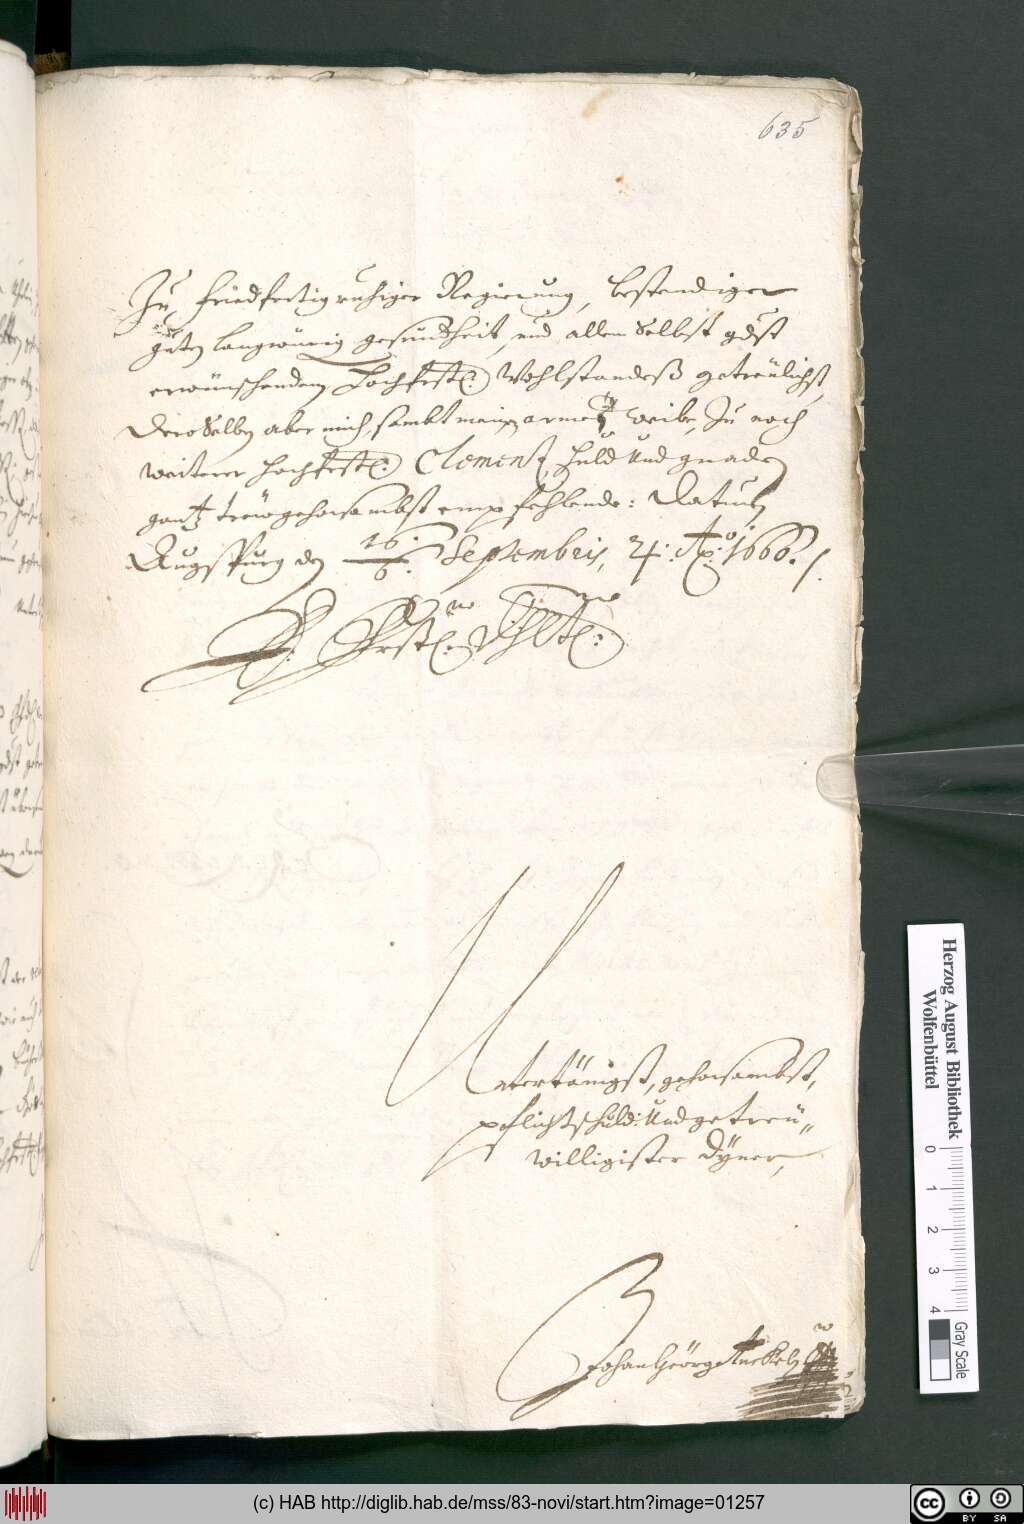 635
Zu friedfertig ruhiger Regierung, bestendiger
guten langwürig gesundheit, und allen Selbst gdst
erwünschenden Hochfrstl: Wohlstandeß getreülichst,
Deroselben aber mich, sambt mein armen weibe, Zu noch
weiterer Hochfrstl: Clementz, huld und gnaden
gantz treügehorsambst empfehlende: Datum
Augspurg den 26/6. Septembris, Ao: 1666.
E. Frstl: Dhlt:
Untertänigst, gehorsambst,
pflichtschuld: und getreü„
willigister Dÿner,
Johan Geörg Anckel
Herzog August Bibliothek
Wolfenbüttel
0 1 2 3 4
Gray Scale
(c) HAB http://diglib.hab.de/mss/83-novi/start.htm?image=01257
cc BY SA